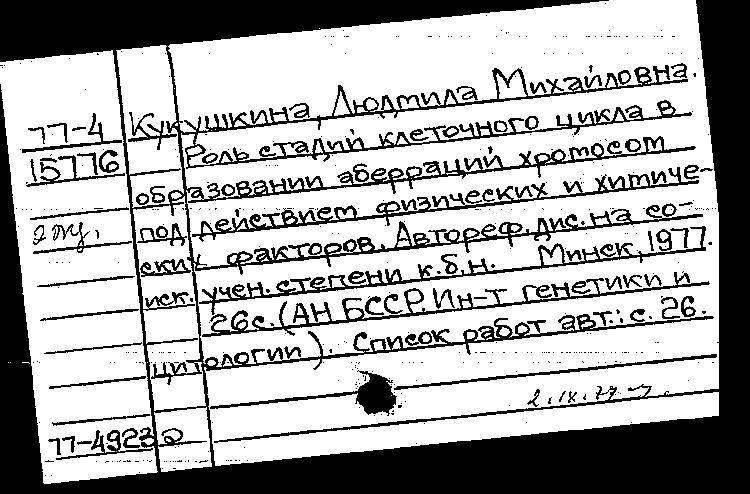 77-4
15776
2 экз.
Кукушкина, Людмила Михайловна.
Роль стадий клеточного цикла в
образовании аберраций хромосом
под действием физических и химиче-
ских факторов. Автореф. дис. на со-
иск. учен. степени к.б.н. Минск, 1977.
26с. (АН БССР. Ин-т генетики и
цитологии). Список работ авт.: с. 26.
2.IX.77
77-49232